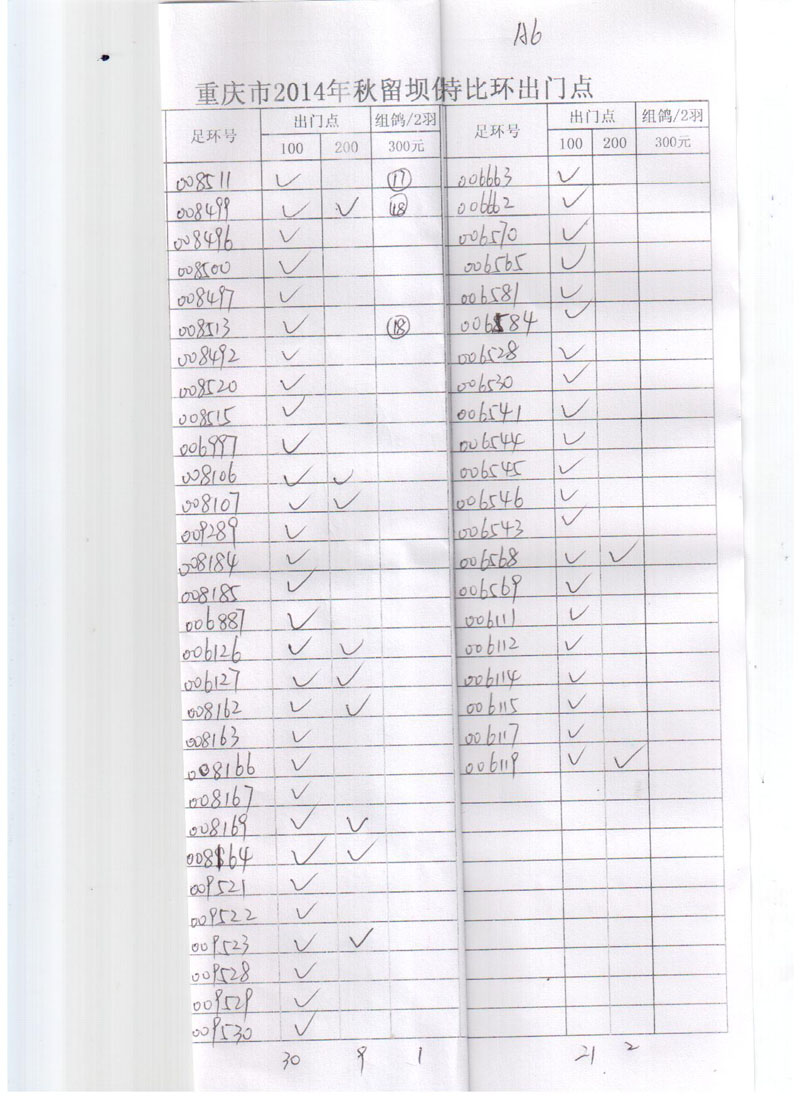 A6
重庆市2014年秋留坝特比环出门点
足环号 出门点 组鸽/2羽 足环号 出门点 组鸽/2羽
100 200 300元 100 200 300元
008511 ✓ ⑰ 006663 ✓
008499 ✓ ✓ ⑱ 006662 ✓
008496 ✓ 006570 ✓
008500 ✓ 006565 ✓
008497 ✓ 006581 ✓
008513 ✓ ⑱ 006584 ✓
008492 ✓ 006528 ✓
008520 ✓ 006530 ✓
008515 ✓ 006541 ✓
006997 ✓ 006544 ✓
008106 ✓ ✓ 006545 ✓
008107 ✓ ✓ 006546 ✓
009289 ✓ 006543 ✓
008184 ✓ 006568 ✓ ✓
008185 ✓ 006569 ✓
006887 ✓ 006111 ✓
006126 ✓ ✓ 006112 ✓
006127 ✓ ✓ 006114 ✓
008162 ✓ ✓ 006115 ✓
008163 ✓ 006117 ✓
008166 ✓ 006119 ✓ ✓
008167 ✓
008169 ✓ ✓
008164 ✓ ✓
009521 ✓
009522 ✓
009523 ✓ ✓
009528 ✓
009529 ✓
009530 ✓
30 9 1 21 2